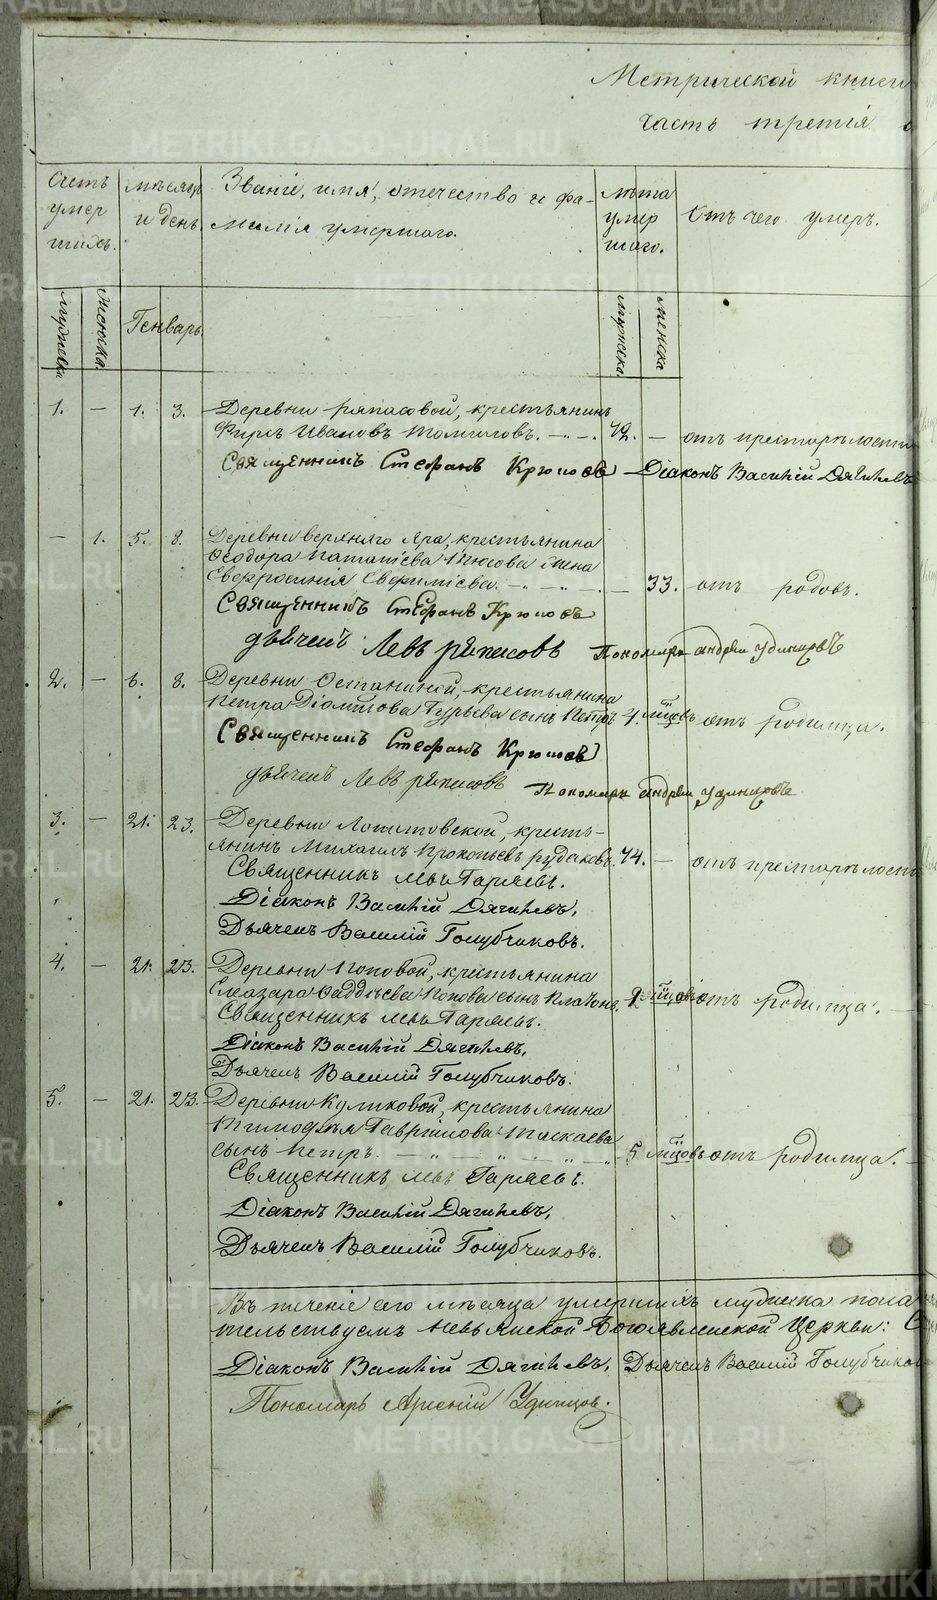 METRIKI.GASO-URAL.RU
Метрической книги
часть третія
METRIKI.GASO-URAL.RU
Счетъ умершихъ.
мѣсяцъ и день.
Званіе, имя, отчество и фамилія умершаго.
лѣта умершаго.
Отъ чего умеръ.
мужеска
женска
Генварь.
мужеска.
женска
1. — 1. 3. Деревни ряпасовой, крестьянинъ
Фирсъ Ивановъ 72. — отъ престарѣлости
Священникъ Стефанъ Крюковъ Діаконъ Василій Дягилевъ
— 1. 5. 8. Деревни верхняго Яра, крестьянина
Ѳеодора жена
33. отъ родовъ.
Священникъ Стефанъ Крюковъ
дьячекъ Левъ ряпасовъ Пономарь андрей удинцовъ
2. — 6. 8. Деревни Останиной, крестьянина
Петра Гурьева сынъ Петръ 4. мцовъ отъ родимца.
Священникъ Стефанъ Крюковъ
дьячекъ Левъ ряпасовъ Пономарь андрей удинцовъ
3. — 21. 23. Деревни кресть-
янинъ Михаилъ Прокопьевъ рудаковъ. 74. — отъ престарѣлости
Священникъ левъ Гаряевъ.
Діаконъ Василій Дягилевъ,
Дьячекъ Василій Голубчиковъ.
4. — 21. 23. Деревни Поповой, крестьянина
Елеазара Ѳаддѣева Попова сынъ отъ родимца.
Священникъ левъ Гаряевъ.
Діаконъ Василій Дягилевъ,
Дьячекъ Василій Голубчиковъ.
5. — 21. 23. Деревни Куликовой, крестьянина
Тимоѳея Гавріилова Таскаева
сынъ Петръ. 5 мцовъ отъ родимца.
Священникъ левъ Гаряевъ.
Діаконъ Василій Дягилевъ,
Дьячекъ Василій Голубчиковъ.
Въ теченіе сего мѣсяца умершихъ мужеска пола
тельствуемъ Невьянской Богоявленской Церкви:
Діаконъ Василій Дягилевъ, Дьячекъ Василій Голубчиковъ
Пономарь Арсеній Удинцов.
METRIKI.GASO-URAL.RU